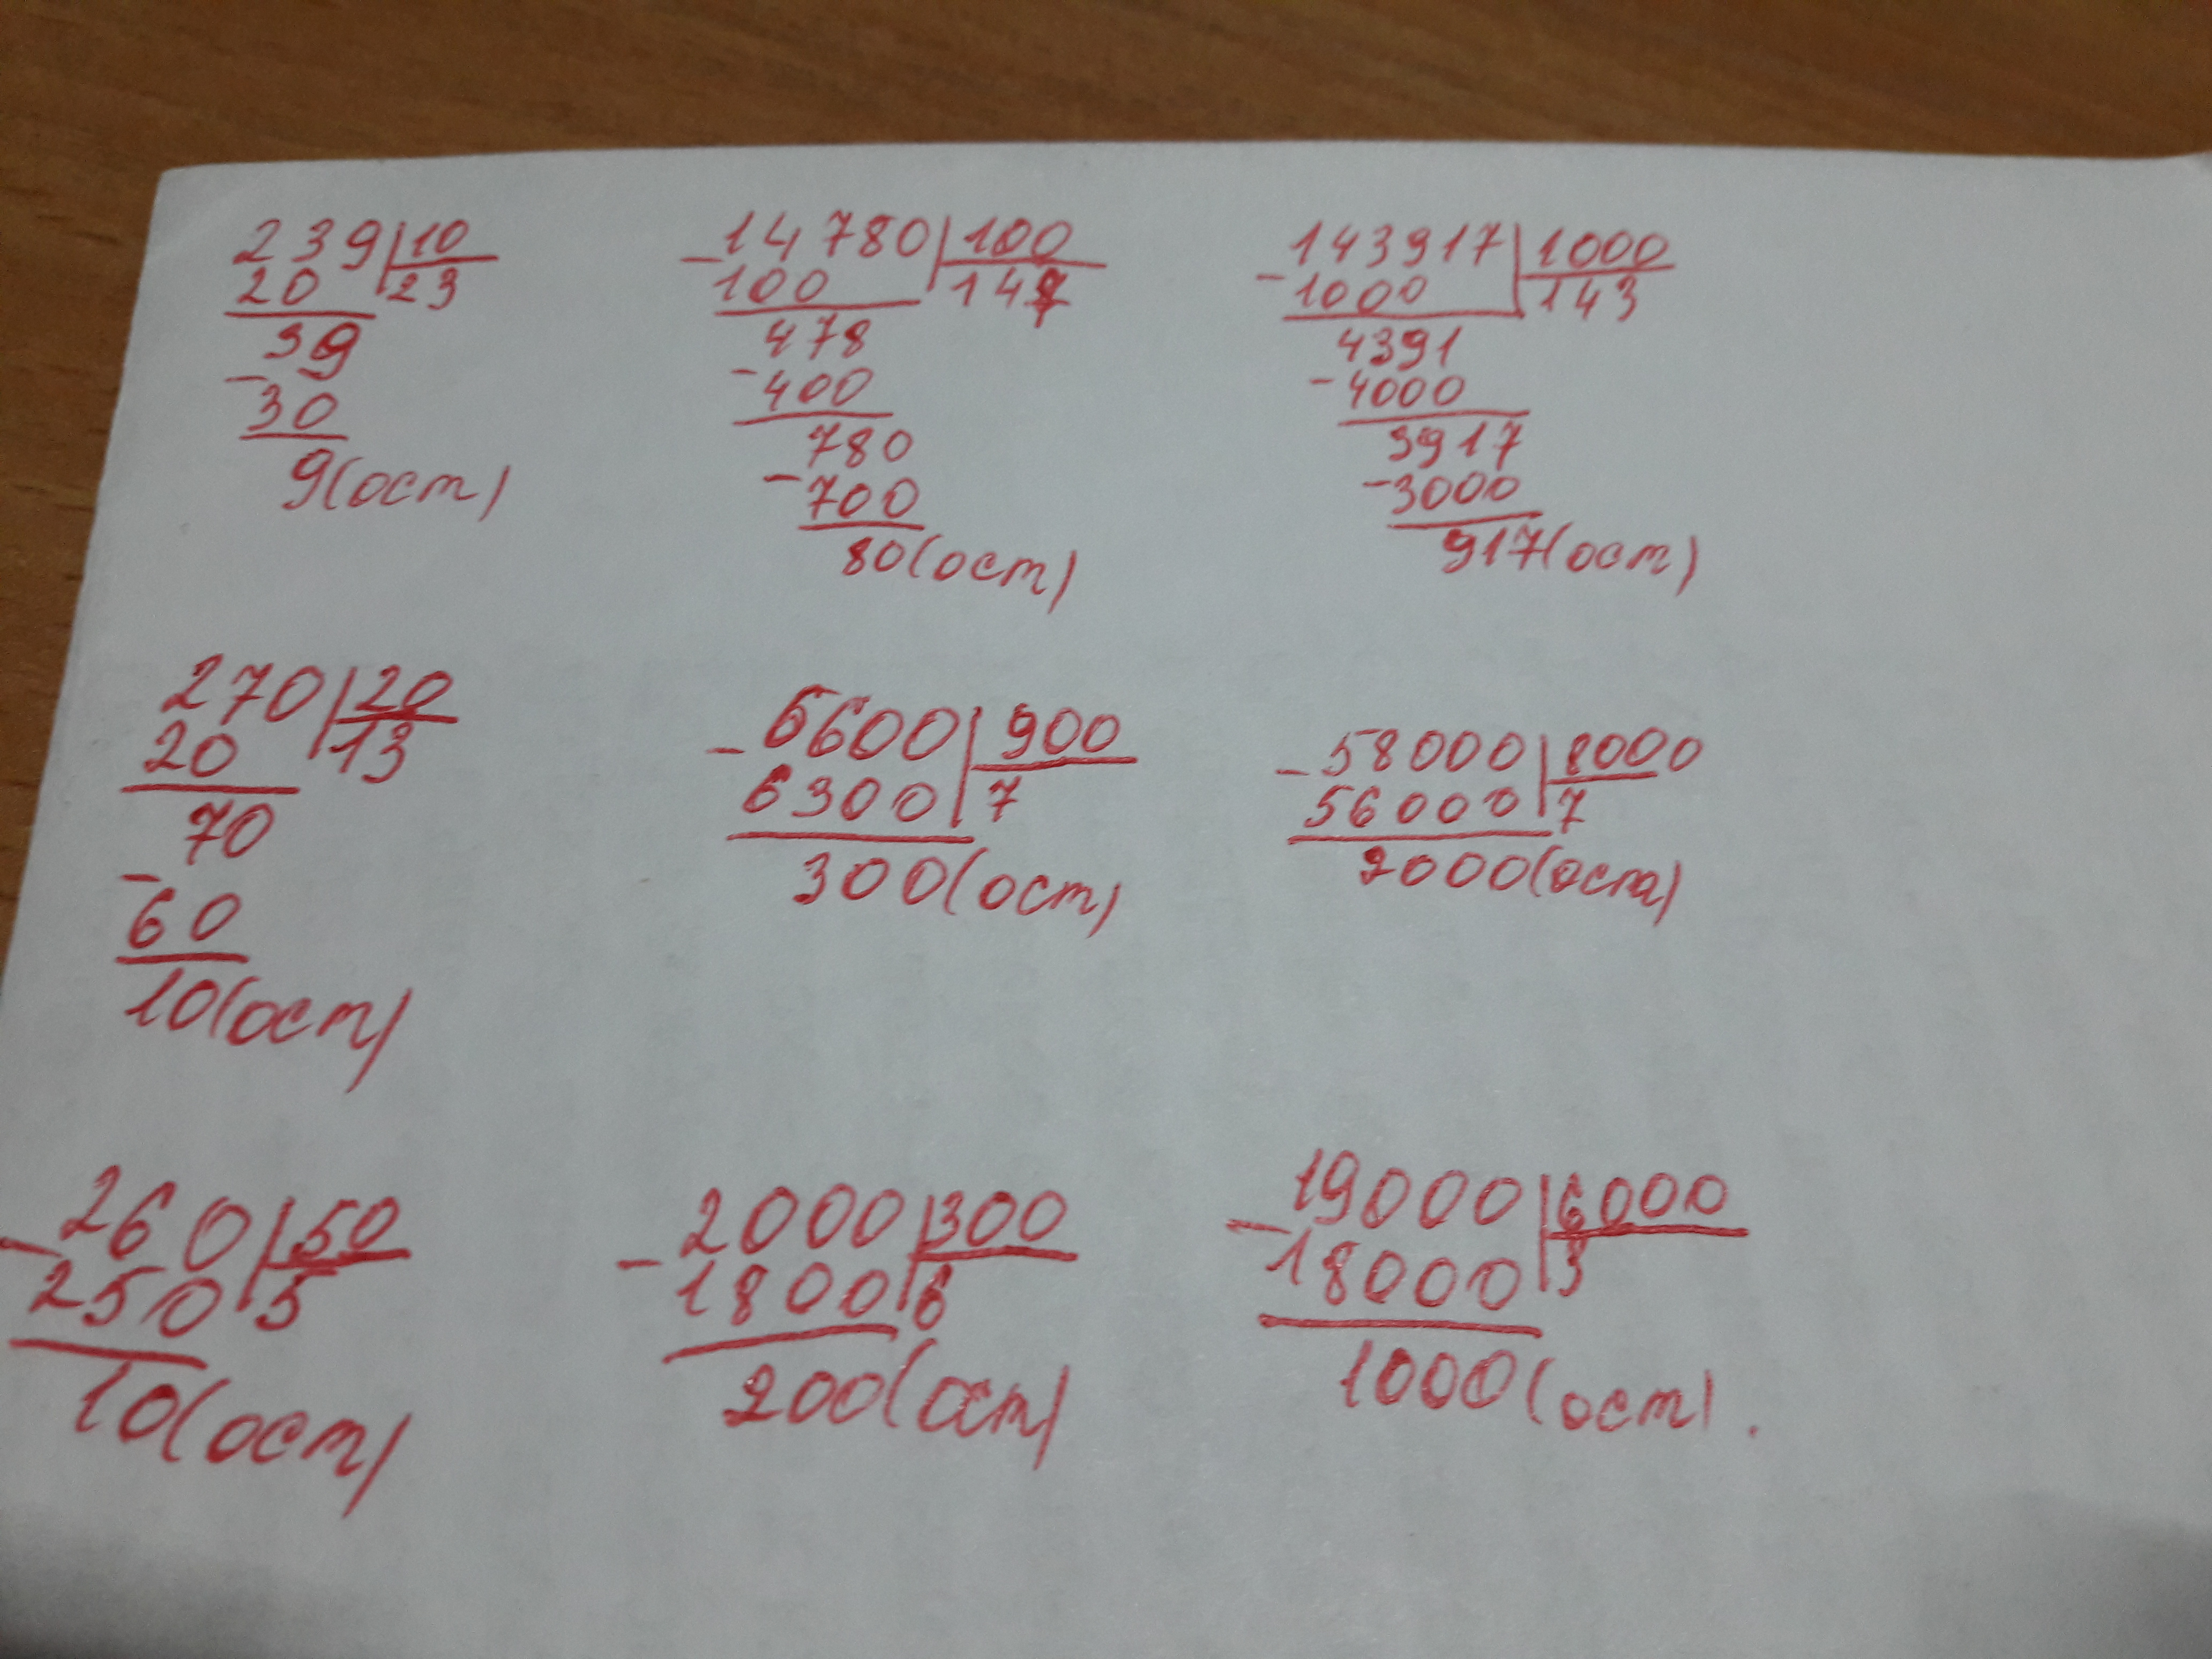 239 10
20 23
39
- 30
9(ост)
- 14780 100
100 147
478
- 400
780
- 700
80(ост)
- 143917 1000
1000 143
4391
- 4000
3917
- 3000
917(ост)
270 20
20 13
70
- 60
10(ост)
- 6600 900
6300 7
300(ост)
- 58000 8000
56000 7
2000(ост)
- 260 50
250 5
10(ост)
- 2000 300
1800 6
200(ост)
- 19000 6000
18000 3
1000(ост).